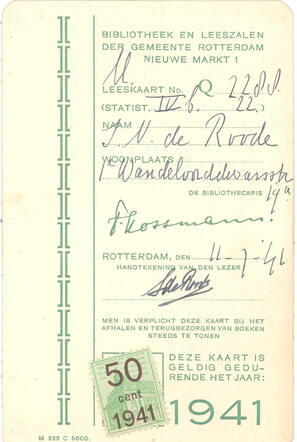 BIBLIOTHEEK EN LEESZALEN
DER GEMEENTE ROTTERDAM
NIEUWE MARKT 1
M.
LEESKAART No. Q 2288.
(STATIST. IV b. 22.)
NAAM
J. V. de Roode
WOONPLAATS
19a
DE BIBLIOTHECARIS
F. Kossmann.
ROTTERDAM, DEN 11-7-'41
HANDTEKENING VAN DEN LEZER
JdeRoode
MEN IS VERPLICHT DEZE KAART BIJ HET
AFHALEN EN TERUGBEZORGEN VAN BOEKEN
STEEDS TE TONEN
50
cent
1941
DEZE KAART IS
GELDIG GEDU-
RENDE HET JAAR:
1941
M 222 C 5000.